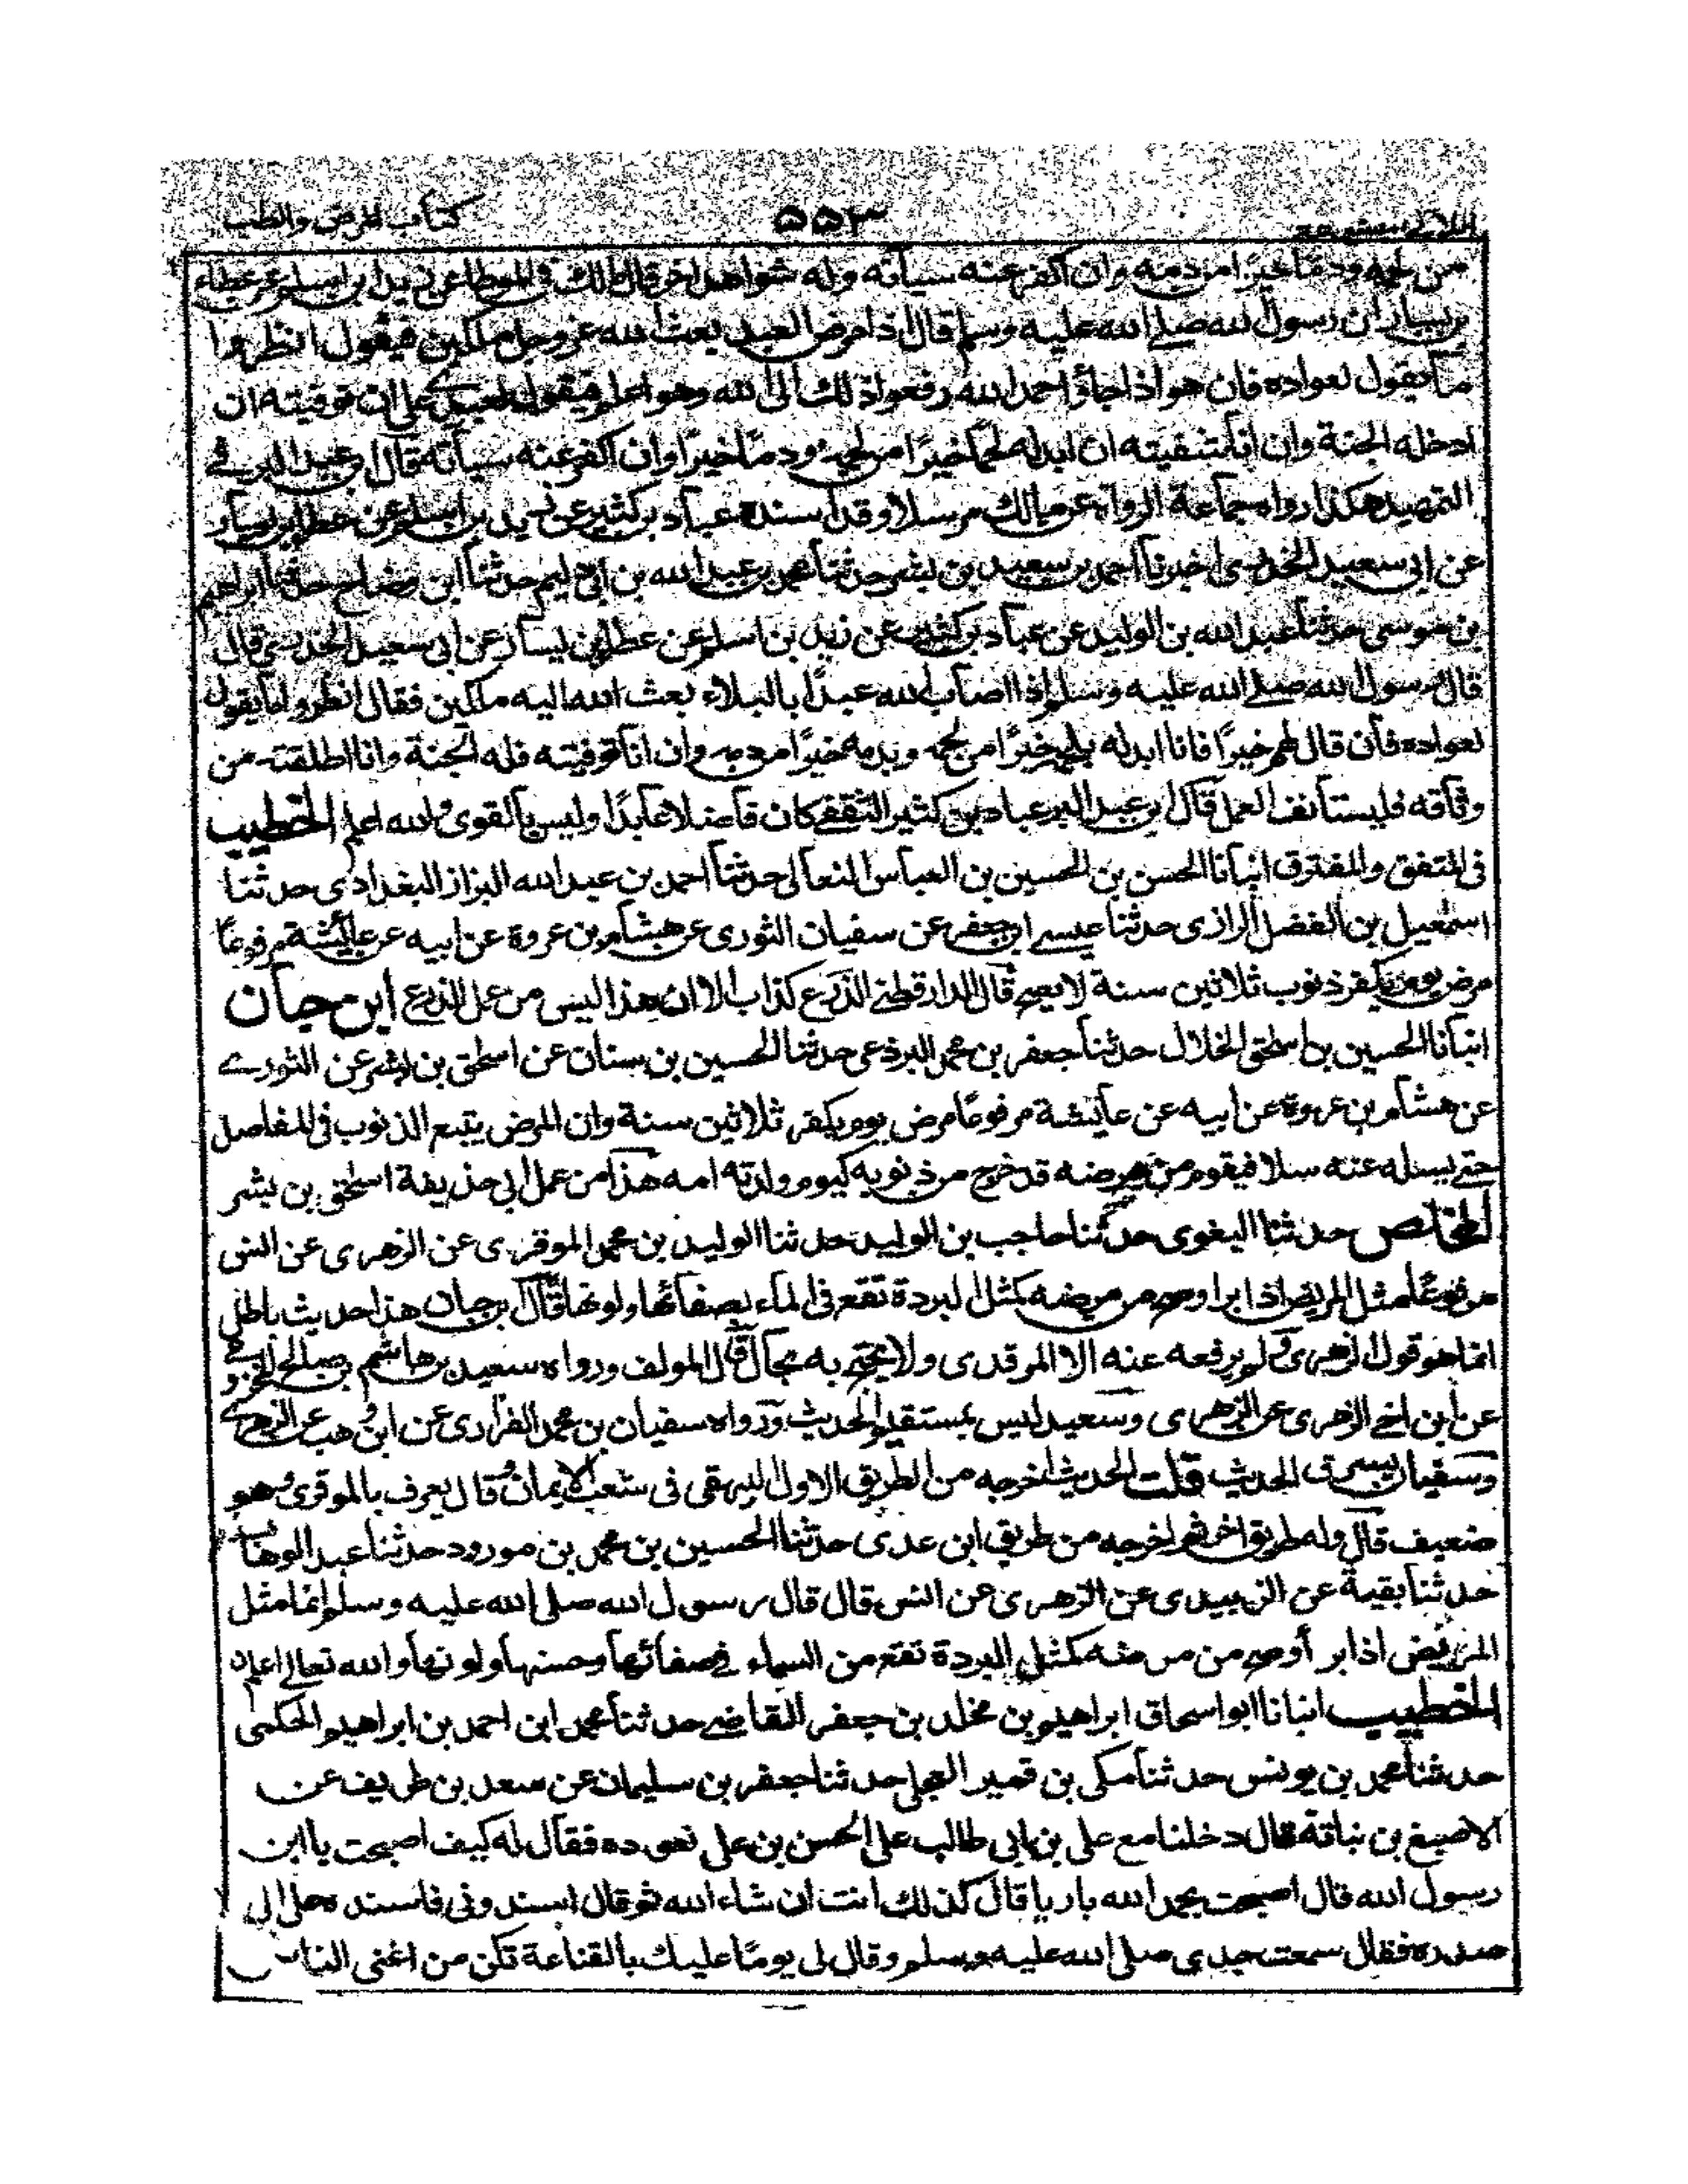 كتاب المرض والطب
٥٥٣
من لحمه ودما خيرا من دمه وان اكفر عنه سيآته وله شواهد اخر قال مالك فى الموطا عن زيد ابن اسلم عن عطاء
بن يسار ان رسول الله صلى الله عليه وسلم قال اذا مرض العبد بعث الله عز وجل ملكين فيقول انظروا
ما يقول لعواده فان هو اذا جاؤا احمد الله رفعوا ذلك الى الله وهو اعلم فيقول لعبدى على ان توفيته ان
ادخله الجنة وان انا شفيته ان ابدله لحما خيرا من لحمه ودما خيرا وان اكفر عنه سيآته قال ابن عبد البر فى
التمهيد هكذا رواه جماعة الرواة عن مالك مرسلا وقد اسنده عباد بن كثير عن زيد بن اسلم عن عطاء بن يسار
عن ابى سعيد الخدرى اخبرنا احمد بن سعيد بن بشر حدثنا محمد بن عبد الله بن ابى دليم حدثنا ابن وضاح حدثنا ابراهيم
بن موسى حدثنا عبد الله بن الوليد عن عباد بن كثير عن زيد بن اسلم عن عطاء بن يسار عن ابى سعيد الخدرى قال
قال رسول الله صلى الله عليه وسلم اذا اصاب الله عبدا بالبلاء بعث الله اليه ملكين فقال انظروا ما يقول
لعواده فان قال لهم خيرا فانا ابدله بلحمه خيرا من لحمه وبدمه خيرا من دمه وان انا توفيته فله الجنة وانا اطلقته من
وثاقه فليستانف العمل قال ابن عبد البر عباد بن كثير الثقفى كان فاضلا عابدا وليس بالقوى والله اعلم الخطيب
فى المتفق والمفترق انبأنا الحسن بن الحسين بن العباس النعالى حدثنا احمد بن عبد الله البزاز البغدادى حدثنا
اسمعيل بن الفضل الرازى حدثنا عيسى ابن جعفر عن سفيان الثورى عن هشام بن عروة عن ابيه عن عائشة مرفوعا
مرض يوم يكفر ذنوب ثلاثين سنة لا يصح قال الدارقطنى الذرع كذاب الا ان هذا ليس من عمل الذرع ابن حبان
انبأنا الحسين بن اسحق الخلال حدثنا جعفر بن محمد البرذعى حدثنا الحسين بن سنان عن اسحق بن بشر عن الثورى
عن هشام بن عروة عن ابيه عن عائشة مرفوعا مرض يوم يكفر ثلاثين سنة وان المرض يتبع الذنوب فى المفاصل
حتى يسله عنه سلا فيقوم من مرضه قد خرج من ذنوبه كيوم ولدته امه هذا من عمل ابى حذيفة اسحق بن بشر
المخلص حدثنا البغوى حدثنا حاجب بن الوليد حدثنا الوليد بن محمد الموقرى عن الزهرى عن انس
مرفوعا مثل المريض اذا برا وصح من مرضه كمثل البردة تقع فى الماء بصفائها ولونها قال ابن حبان هذا حديث باطل
انما هو قول الزهرى ولم يرفعه عنه الا الموقدى ولا يحتج به بحال قال المولف ورواه سعيد بن هاشم بن صالح المخزومى
عن ابن اخى الزهرى عن الزهرى وسعيد ليس بمستقيم الحديث ورواه سفيان بن محمد الفزارى عن ابن وهب عن الزهرى
وسفيان يسرق الحديث قلت الحديث اخرجه من الطريق الاول البيهقى فى شعب الايمان وقال يعرف بالموقرى وهو
ضعيف قال وله طريق اخر ثم اخرجه من طريق ابن عدى حدثنا الحسين بن محمد بن مورود حدثنا عبد الوهاب
حدثنا بقية عن الزبيدى عن الزهرى عن انس قال قال رسول الله صلى الله عليه وسلم انما مثل
المريض اذا برأ وصح من مرضه كمثل البردة تقع من السماء فى صفائها وحسنها ولونها والله تعالى اعلم
الخطيب انبانا ابو اسحاق ابراهيم بن مخلد بن جعفر القاضى حدثنا محمد ابن احمد بن ابراهيم الحكمى
حدثنا محمد بن يونس حدثنا مكى بن قمير العجلى حدثنا جعفر بن سليمان عن سعد بن طريف عن
الاصبغ بن نباتة قال دخلنا مع على بن ابى طالب على الحسن بن على نعوده فقال له كيف اصبحت يا ابن
رسول الله قال اصبحت بحمد الله باريا قال كذلك انت ان شاء الله ثم قال اسندونى فاسنده على الى
صدره فقال سمعت جدى صلى الله عليه وسلم وقال لى يوما عليك بالقناعة تكن من اغنى الناس